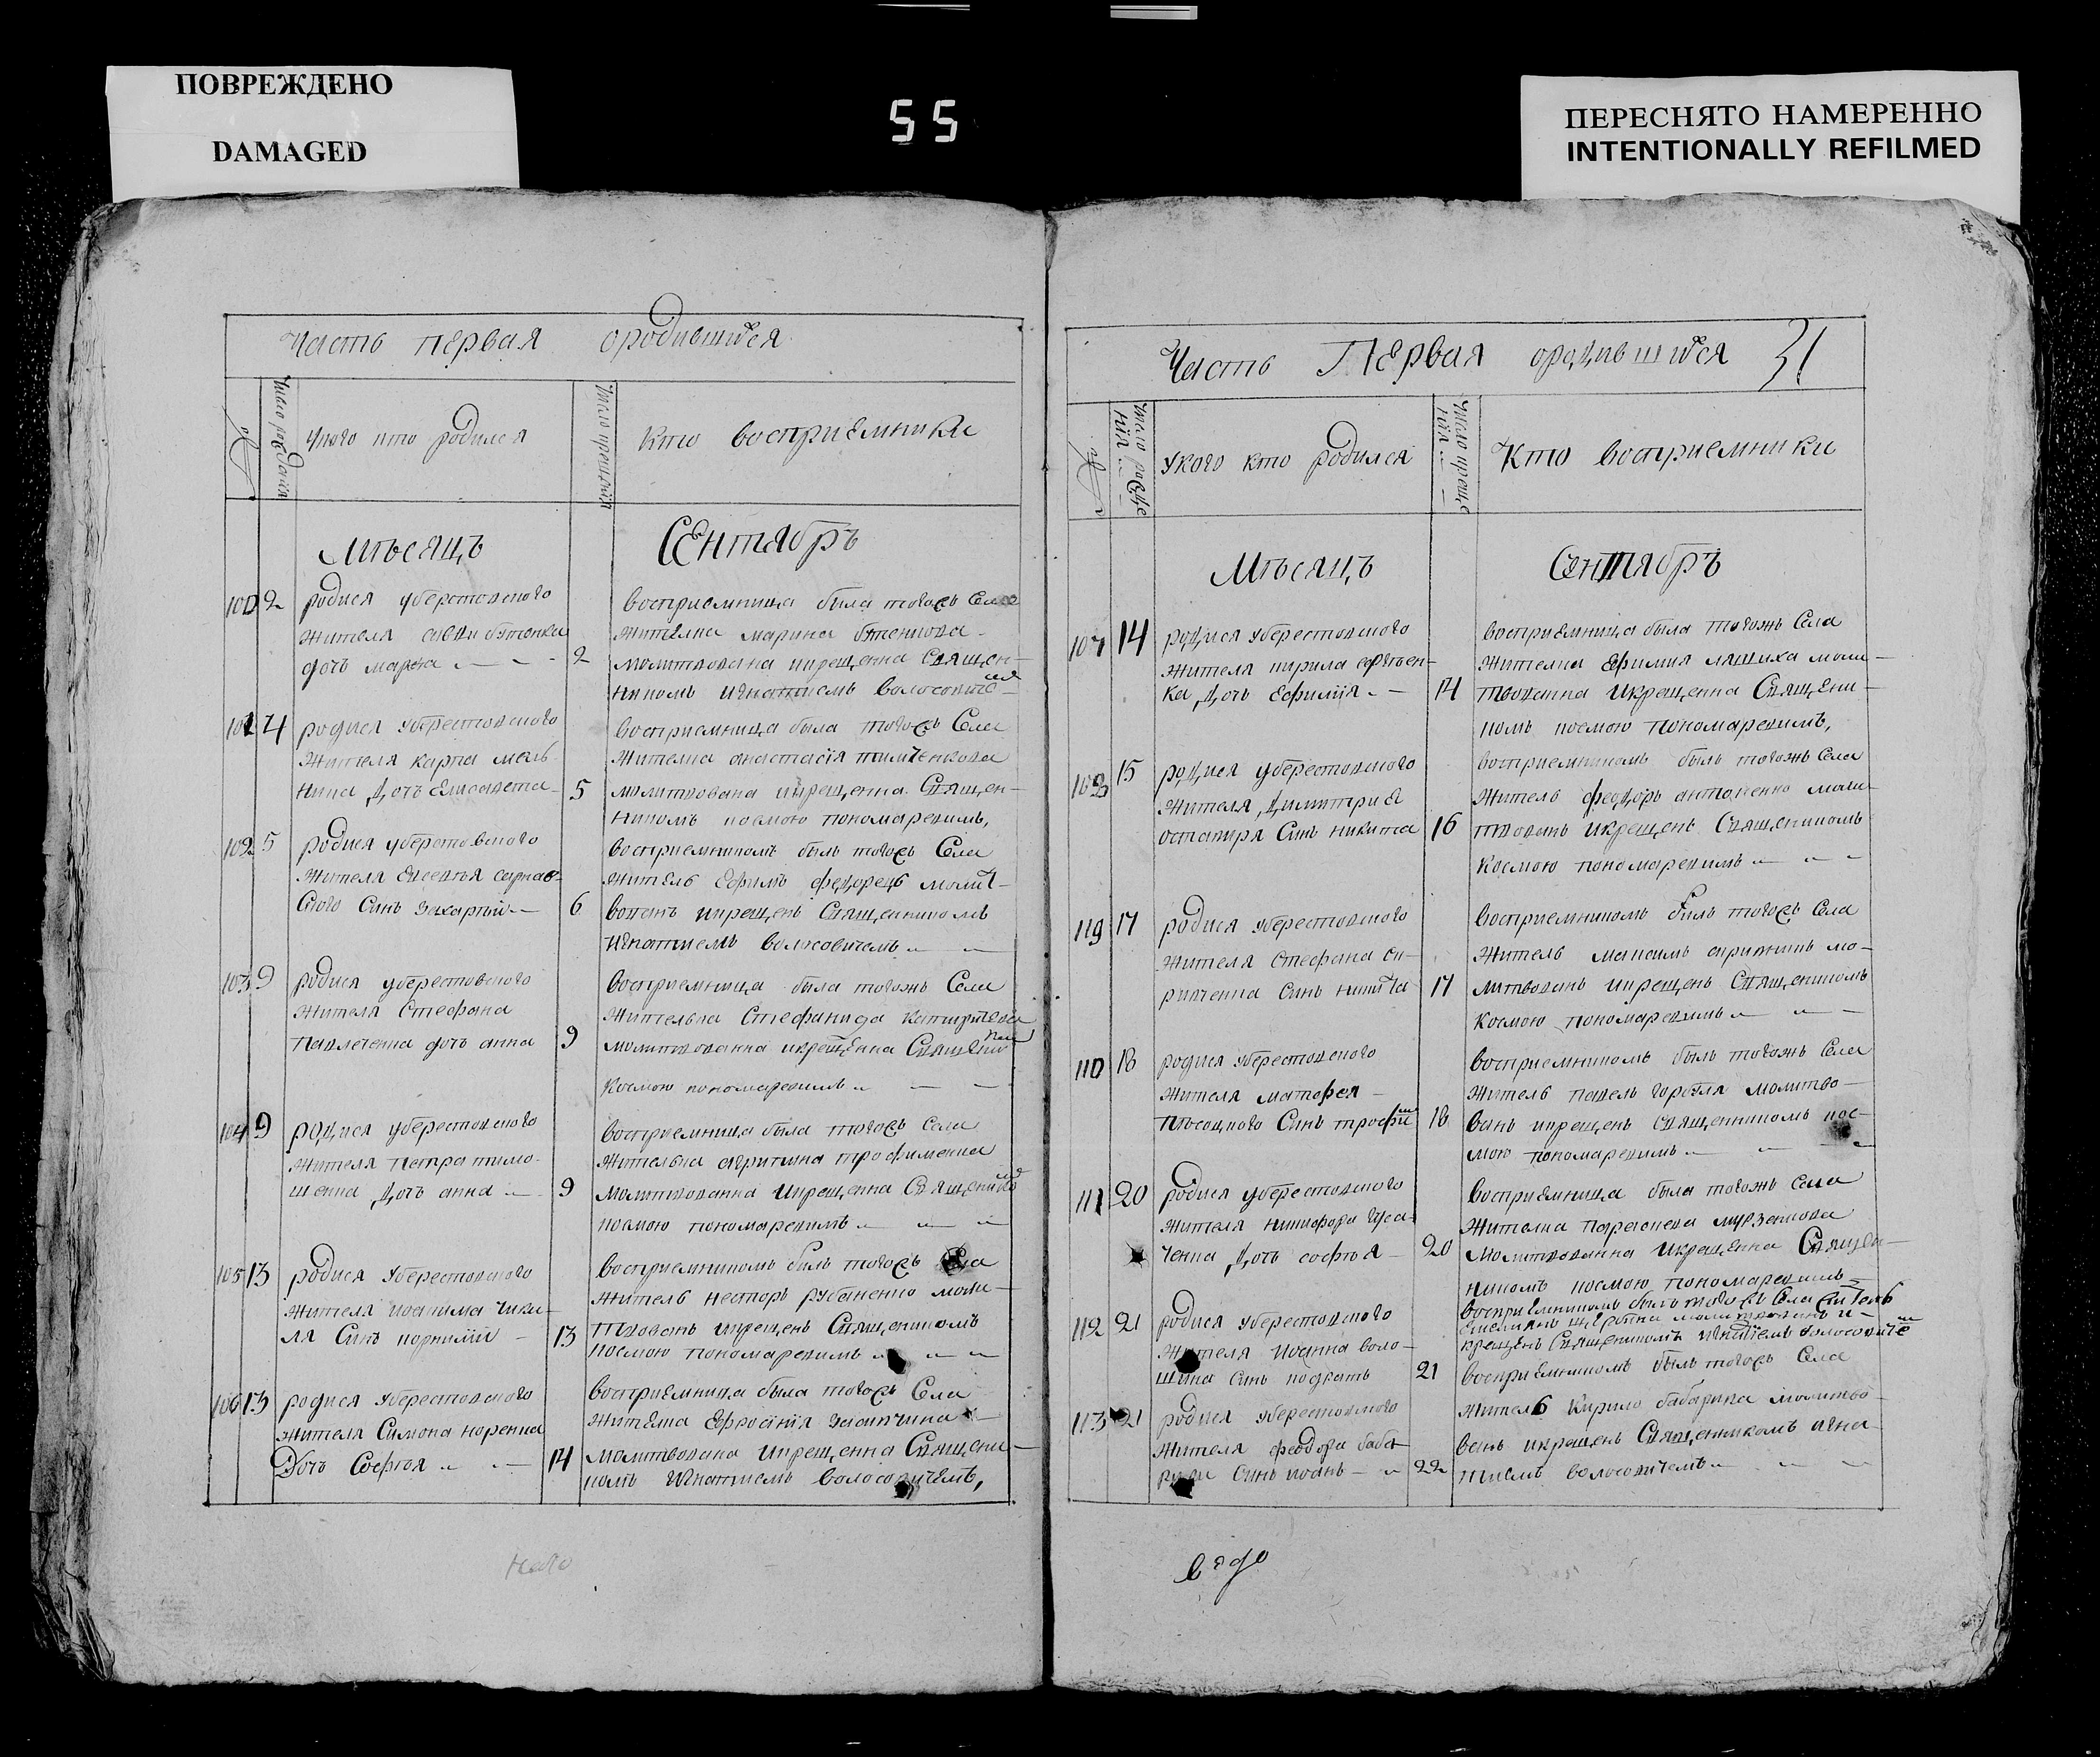 ПОВРЕЖДЕНО
DAMAGED
55
ПЕРЕСНЯТО НАМЕРЕННО
INTENTIONALLY REFILMED
Часть первая ородившихся
Число рожденія
Укого кто родился
Число крещенія
Кто восприемники
Мѣсяцъ Сентябръ
100 2 родися уберестовского
жителя
дочь марфа 2
восприемница была тогожъ Села
жителка марина
молитвована икрещенна Священ-
никомъ игнатиемъ волосовичем
101 4 родися уберестовского
жителя карпа мель
ника дочь Елисавета 5
восприемница была тогожъ Села
жителка анастасія тимченкова
молитвована икрещенна Священ-
никомъ космою пономаревимъ,
102 5 родися уберестовского
жителя Евсевъя
Синъ захарый 6
восприемникомъ билъ тогожъ Села
житель Ефимъ федорецъ молит-
вованъ икрещенъ Священникомъ
игнатиемъ волосовичемъ
103 9 родися уберестовского
жителя Стефана
павленка дочь анна 9
восприемница была тогожъ Села
жителька Стефанида
молитвованна икрещенна Священником
Космою пономаревимъ
104 9 родися уберестовского
жителя петра тимо-
шенка дочь анна 9
восприемница была тогожъ Села
жителька агрипина трофименка
молитвованна икрещенна Священником
космою пономаревимъ
105 13 родися уберестовского
жителя иоакима чики-
ла Синъ корнилий 13
восприемникомъ билъ тогожъ Села
житель несторъ рубаненко моли-
твованъ икрещенъ Священникомъ
космою пономаревимъ
106 13 родися уберестовского
жителя Симона коренка
Дочь Софъя 14
восприемница была тогожъ Села
жителка Ефросінія
молитвована икрещенна Священи-
комъ игнатиемъ волосовичемъ,
Часть Первая ородившихся 31
Число рожде
нія
укого кто родился
Число креще
нія
Кто восприемники
Мѣсяцъ Сентябръ
107 14 родися уберестовского
жителя кирила
ка дочь Ефимія 14
восприемница была тогожъ Села
жителка Ефимия ляшиха моли-
твованна икрещенна Священи-
комъ космою пономаревимъ,
108 15 родися уберестовского
жителя Димитрия
остапира Синъ никита 16
восприемникомъ билъ тогожъ Села
житель феодоръ антоненко моли-
твованъ икрещенъ Священникомъ
Космою пономаревимъ
119 17 родися уберестовского
жителя Стефана ки-
риченка Синъ никита 17
восприемникомъ билъ тогожъ Села
житель максимъ мо-
литвованъ икрещенъ Священикомъ
Космою пономаревимъ
110 18 родися уберестовского
жителя матфея
Песоцкого Синъ трофим 18
восприемникомъ билъ тогожъ Села
житель павелъ молитво-
ванъ икрещенъ Священникомъ кос-
мою пономаревимъ
111 20 родися уберестовского
жителя никифора Гуса-
ченка дочь софъя 20
восприемница была тогожъ Села
жителка параскева мурзенкова
молитвованна икрещенна Священ-
никомъ космою пономаревимъ
112 21 родися уберестовского
жителя иоанна воло-
шина Синъ кодратъ 21
восприемникомъ билъ тогожъ Села житель
молитвованъ и-
крещенъ Священникомъ игнатіемъ волосовичем
113 21 родися уберестовского
жителя феодора баба-
Синъ иоанъ 22
восприемникомъ билъ тогожъ Села
житель Кирило бабарика молитво-
ванъ икрещенъ Священникомъ игна-
тиемъ волосовичемъ